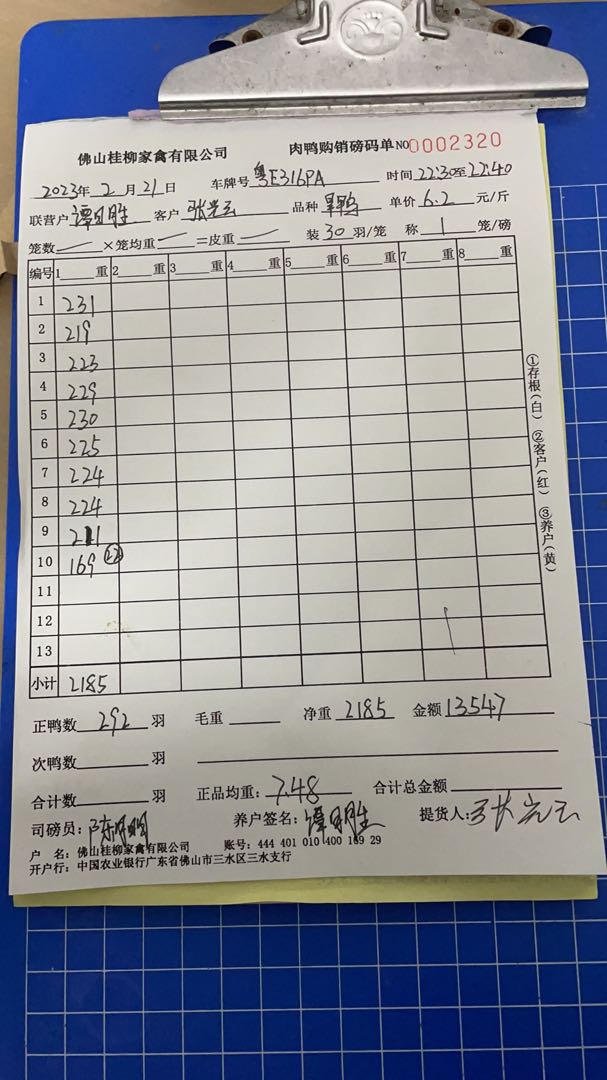 佛山桂柳家禽有限公司 肉鸭购销磅码单 NO 0002320
2023年 2月 21日 车牌号 粤E316PA 时间 22:30至 22:40
联营户 谭月胜 客户 张光云 品种 单价 6.2 元/斤
笼数 ×笼均重 =皮重 装 30 羽/笼 称 1 笼/磅
编号 1 重 2 重 3 重 4 重 5 重 6 重 7 重 8 重
1 231
2 219
3 223
4 229
5 230
6 225
7 224
8 224
9 211
10 169 22
11
12
13
小计 2185
①存根(白) ②客户(红) ③养户(黄)
正鸭数 292 羽 毛重 净重 2185 金额 13547
次鸭数 羽
合计数 羽 正品均重: 7.48 合计总金额
司磅员: 养户签名: 谭月胜 提货人: 张光云
户 名: 佛山桂柳家禽有限公司 账号: 444 401 010 400 169 29
开户行: 中国农业银行广东省佛山市三水区三水支行